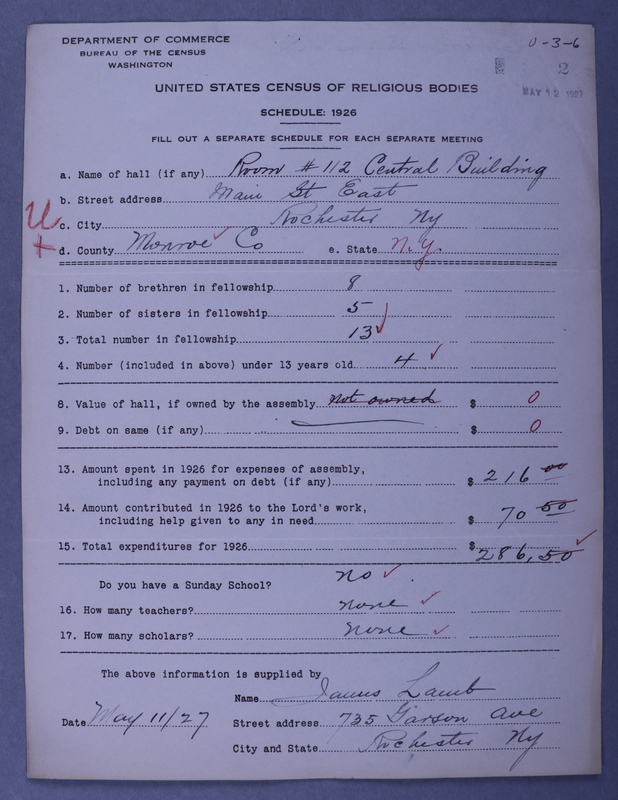 DEPARTMENT OF COMMERCE
BUREAU OF THE CENSUS
WASHINGTON
0-3-6
2
MAY 12 1927
UNITED STATES CENSUS OF RELIGIOUS BODIES
SCHEDULE: 1926
FILL OUT A SEPARATE SCHEDULE FOR EACH SEPARATE MEETING
a. Name of hall (if any) Room #112 Central Building
b. Street address Main St East
c. City Rochester Ny
d. County Monroe Co e. State N.Y.
1. Number of brethren in fellowship 8
2. Number of sisters in fellowship 5
3. Total number in fellowship 13
4. Number (included in above) under 13 years old 4
8. Value of hall, if owned by the assembly not owned $ 0
9. Debt on same (if any) $ 0
13. Amount spent in 1926 for expenses of assembly,
including any payment on debt (if any) $ 216 00
14. Amount contributed in 1926 to the Lord's work,
including help given to any in need $ 70 50
15. Total expenditures for 1926 $ 286,50
Do you have a Sunday School? no
16. How many teachers? none
17. How many scholars? none
The above information is supplied by
Name James Lamb
Date May 11/27 Street address 735 Garson Ave
City and State Rochester Ny